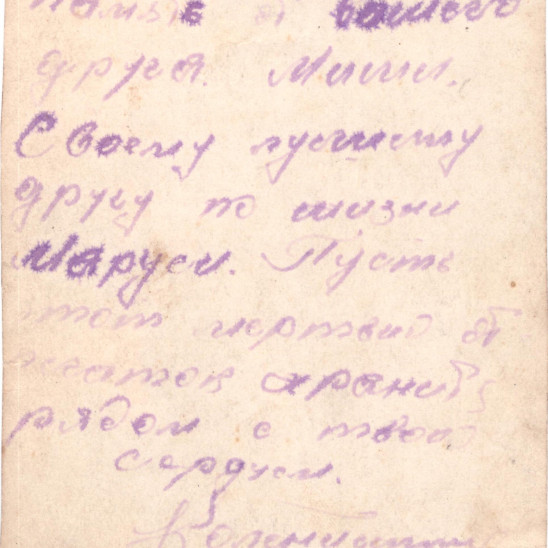 память от вашего
друга. Миши.
Своему лучшему
другу по жизни
Маруси. Пусть
этот мертвый от
печаток хранит
рядом с твоей
сердцем.